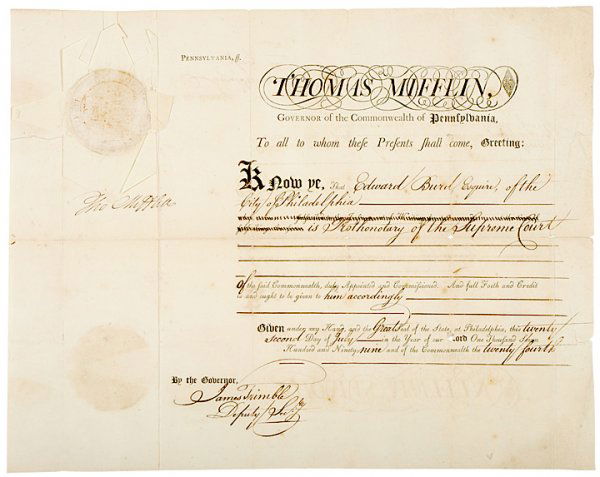 PENNSYLVANIA, ſſ.
THOMAS MIFFLIN,
GOVERNOR of the COMMONWEALTH of Pennſylvania,
To all to whom theſe Preſents ſhall come, Greeting:
KNOW YE, That Edward Burd Eſquire, of the
City of Philadelphia
is Prothonotary of the Supreme Court
Tho Mifflin
Of the ſaid Commonwealth, duly Appointed and Commiſſioned. And full Faith and Credit
is and ought to be given to him accordingly
GIVEN under my Hand, and the Great Seal of the State, at Philadelphia, this twenty
second Day of July in the Year of our Lord One Thouſand Seven
Hundred and Ninety-nine and of the Commonwealth the twenty fourth
By the Governor,
James Trimble
Deputy Secy